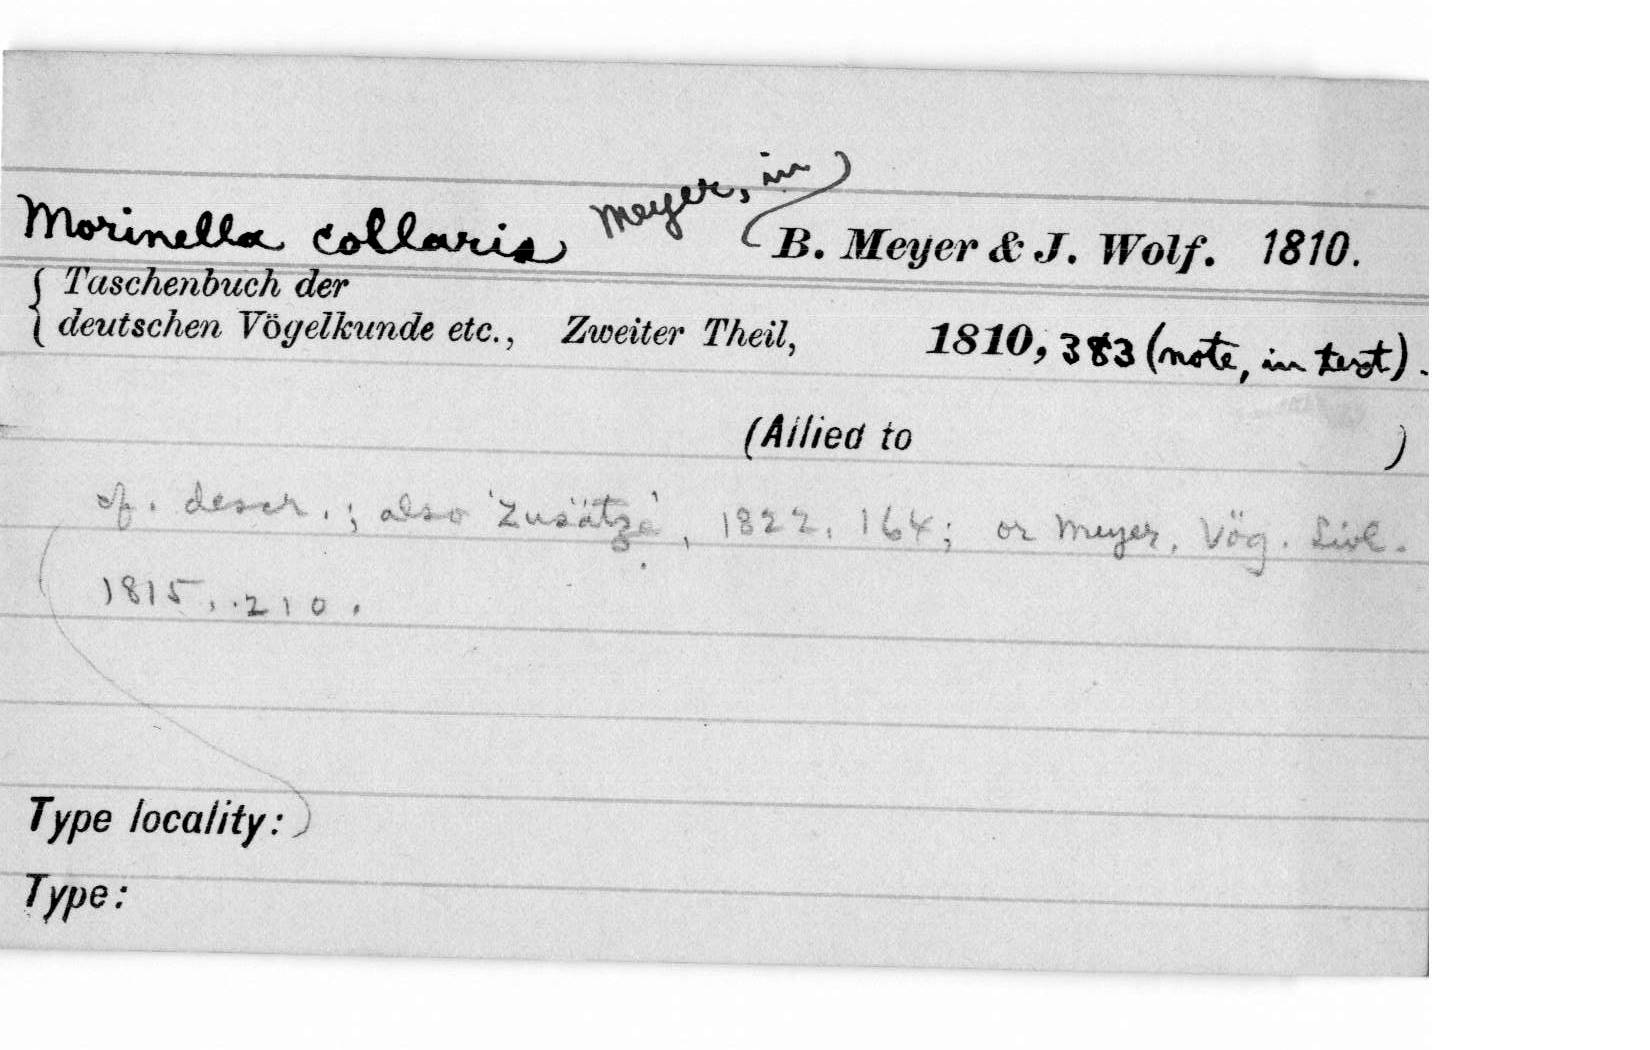 Morinella collaris Meyer, in B. Meyer & J. Wolf. 1810.
{ Taschenbuch der
deutschen Vögelkunde etc., Zweiter Theil, 1810, 383 (note, in text).
(Allied to )
cf. descr.; also 'Zusätze', 1822, 164; or Meyer, Vög. Livl.
1815, 210.
Type locality:
Type: